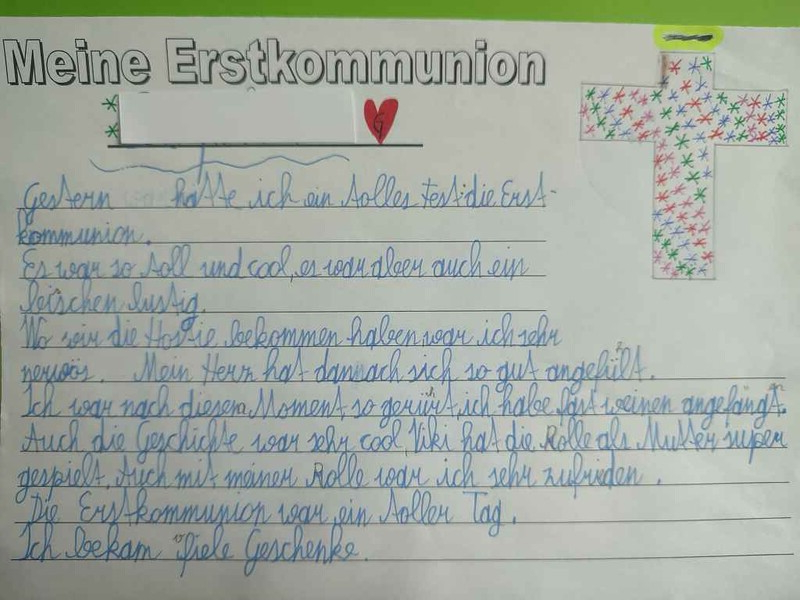 Meine Erstkommunion
G
Gestern hatte ich ein tolles Fest: die Erst-
kommunion.
Es war so toll und cool, es war aber auch ein
bisschen lustig.
Wo wir die Hostie bekommen haben, war ich sehr
nervös. Mein Herz hat dannach sich so gut angefühlt.
Ich war nach diesem Moment so gerührt, ich habe fast weinen angefangt.
Auch die Geschichte war sehr cool, Viki hat die Rolle als Mutter super
gespielt. Auch mit meiner Rolle war ich sehr zufrieden.
Die Erstkommunion war ein toller Tag.
Ich bekam viele Geschenke.